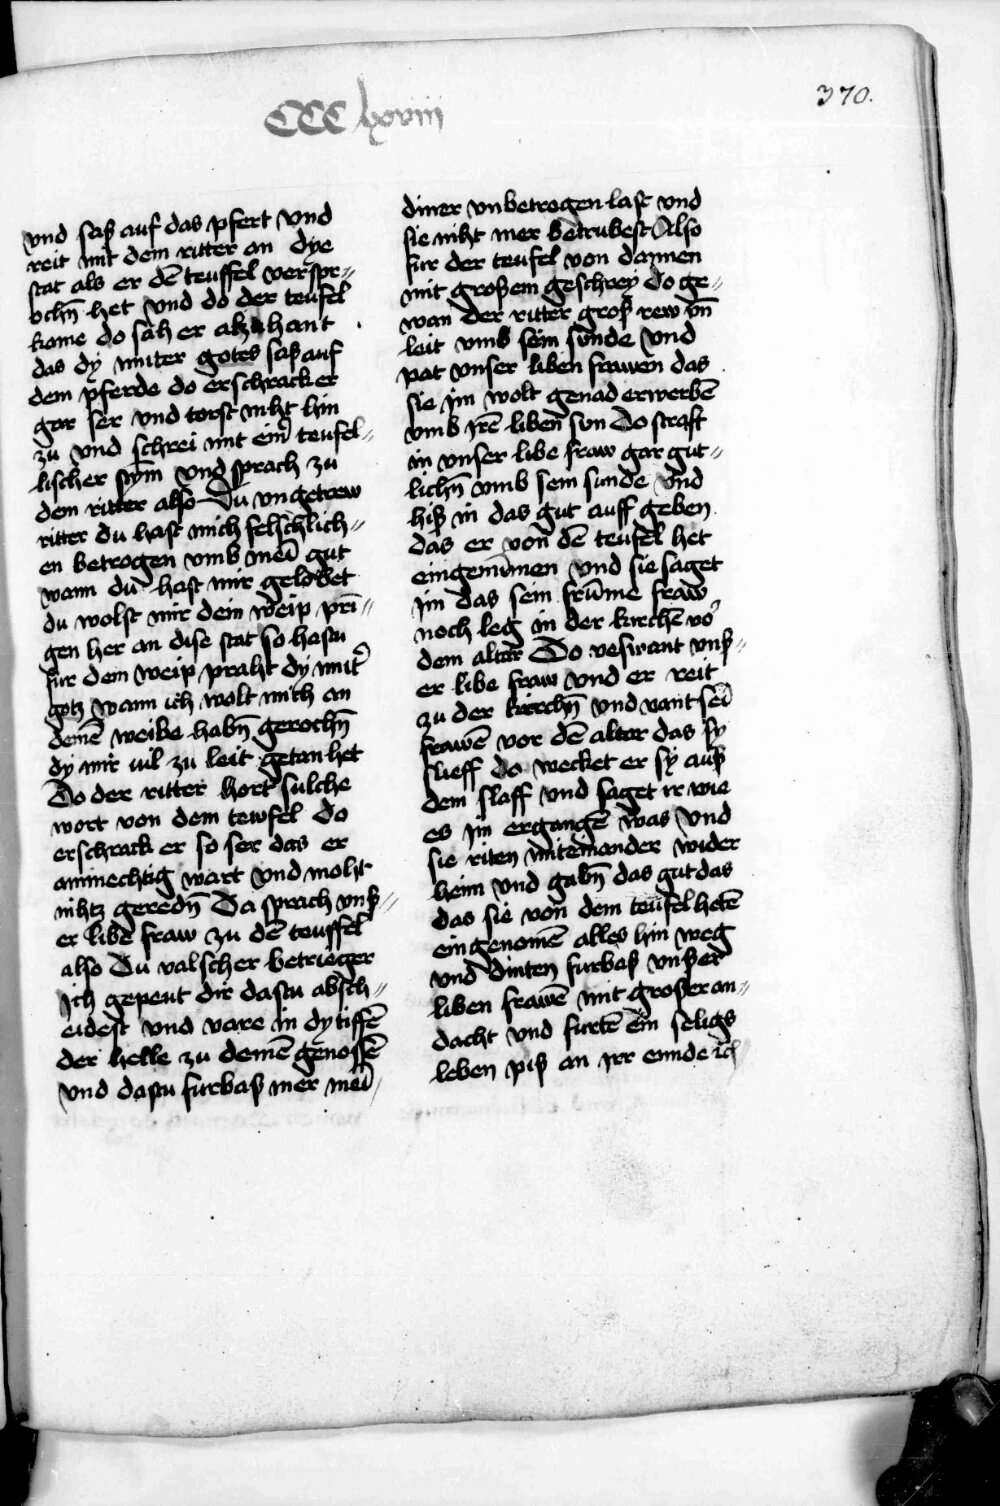 CCC lxviii
370.
vnd saß auf das pfert vnd
reit mit dem ritter an dye
stat als er dē teuffel verspr〃
ochn̄ het vnd do der teufel
kome do sah er alzuhant
das dy muter gotes saß auf
dem pferde do erschrack er
gar ser vnd torst niht hin
zu vnd schrei mit eim̄ teufel〃
lischer stym̄ vnd sprach zu
dem ritter also Du vngetrew
ritter du hast mich felschlich〃
en betrogen vmb mei͞ gut
wann du hast mir gelobet
du wolst mir dein weip pri͞〃
gen her an dise stat so hastu
fur dem weip praht dy mut̾
gotz wann ich wolt mich an
deinē weibe habn̄ gerochn̄
dy mir vil zu leit getan het
Do der ritter hort sulche
wort von dem tewfel do
erschrack er so ser das er
ammechtig wart vnd moht
nihtz geredn̄ Da sprach vnß〃
er libe fraw zu dē teuffel
also Du valscher betrieger
ich gepeut dir dastu absch〃
eidest vnd vare in dy tiffē
der helle zu deinē genossē
vnd dastu furbaß mer mei͞
diner vnbetrogen last vnd
sie niht mer betrubest Also
fur der teufel von dannen
mit großem geschrey do ge〃
wan der ritter groß rew vn̄
leit vmb sein sunde vnd
pat vnser liben frawen das
sie im wolt genad erwerbē
vmb irē liben sun Do straft
in vnser libe fraw gar gut〃
lichn̄ vmb sein sunde vnd
hiß in das gut auff geben
das er von dē teufel het
eingenumen vnd sie saget
im das sein frūme fraw
noch leg in der kirchē vo̾
dem altar Do veswant vnß〃
er libe fraw vnd er reit
zu der kirchn̄ vnd vant sei͞
frawē vor dē altar das sy
slieff do wecket er sy auß
dem slaff vnd saget ir wie
es im ergangē was vnd
sie riten miteinander wider
heim vnd gabn̄ das gut das
das sie von dem teufel hetē
eingenomē alles hin weg
vnd dinten furbaß vnßer
liben frawē mit großer an〃
dacht vnd furtē ein seligs
leben piß an irr ennde ich